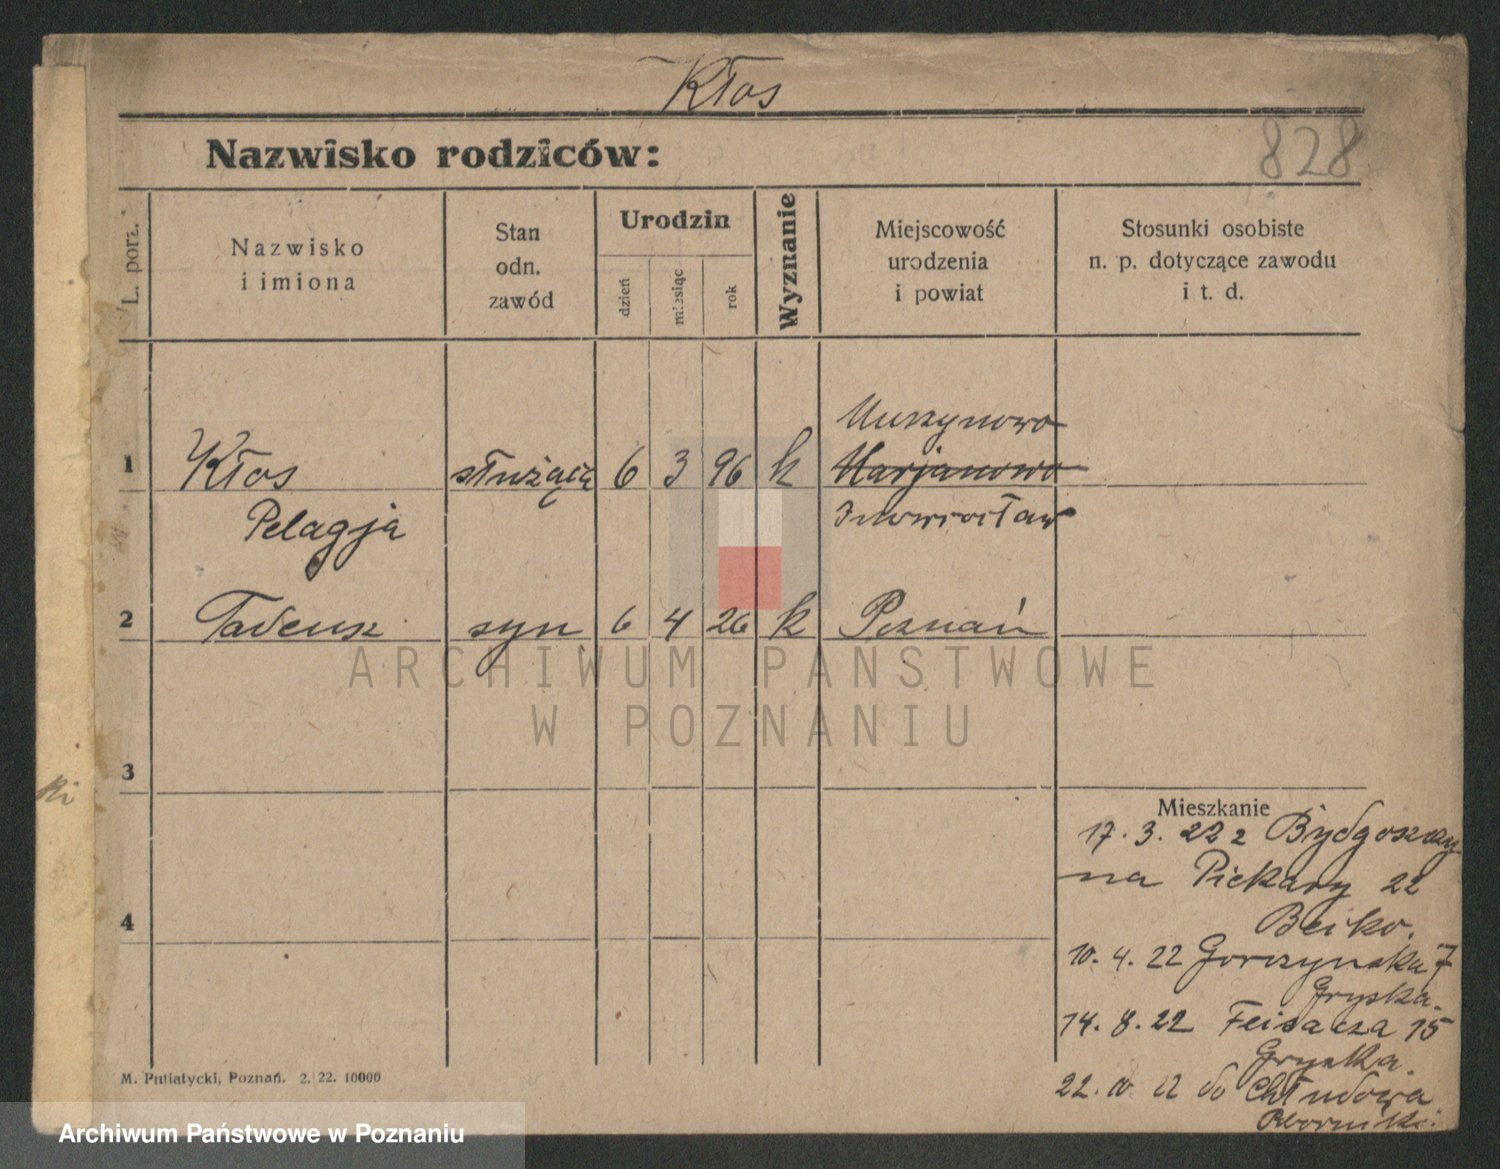 Kłos
828
Nazwisko rodziców:
L. porz.
Nazwisko
i imiona
Stan
odn.
zawód
Urodzin
dzień
miesiąc
rok
Wyznanie
Miejscowość
urodzenia
i powiat
Stosunki osobiste
n. p. dotyczące zawodu
i t. d.
Murzynowo
1 Kłos służąca 6 3 96 k Marjanowo
Pelagja Inowrocław
2 Tadeusz syn 6 4 26 k Poznań
ARCHIWUM PAŃSTWOWE
W POZNANIU
3
ki
Mieszkanie
17. 3. 22 z Bydgoszczy
na Piekary 22
Beiko.
4
10. 4. 22 Gorczyńska 7
Gryska.
14. 8. 22 15
Gryska.
22. do Chludowa
Oborniki
M. Putiatycki, Poznań. 2. 22. 10000
Archiwum Państwowe w Poznaniu